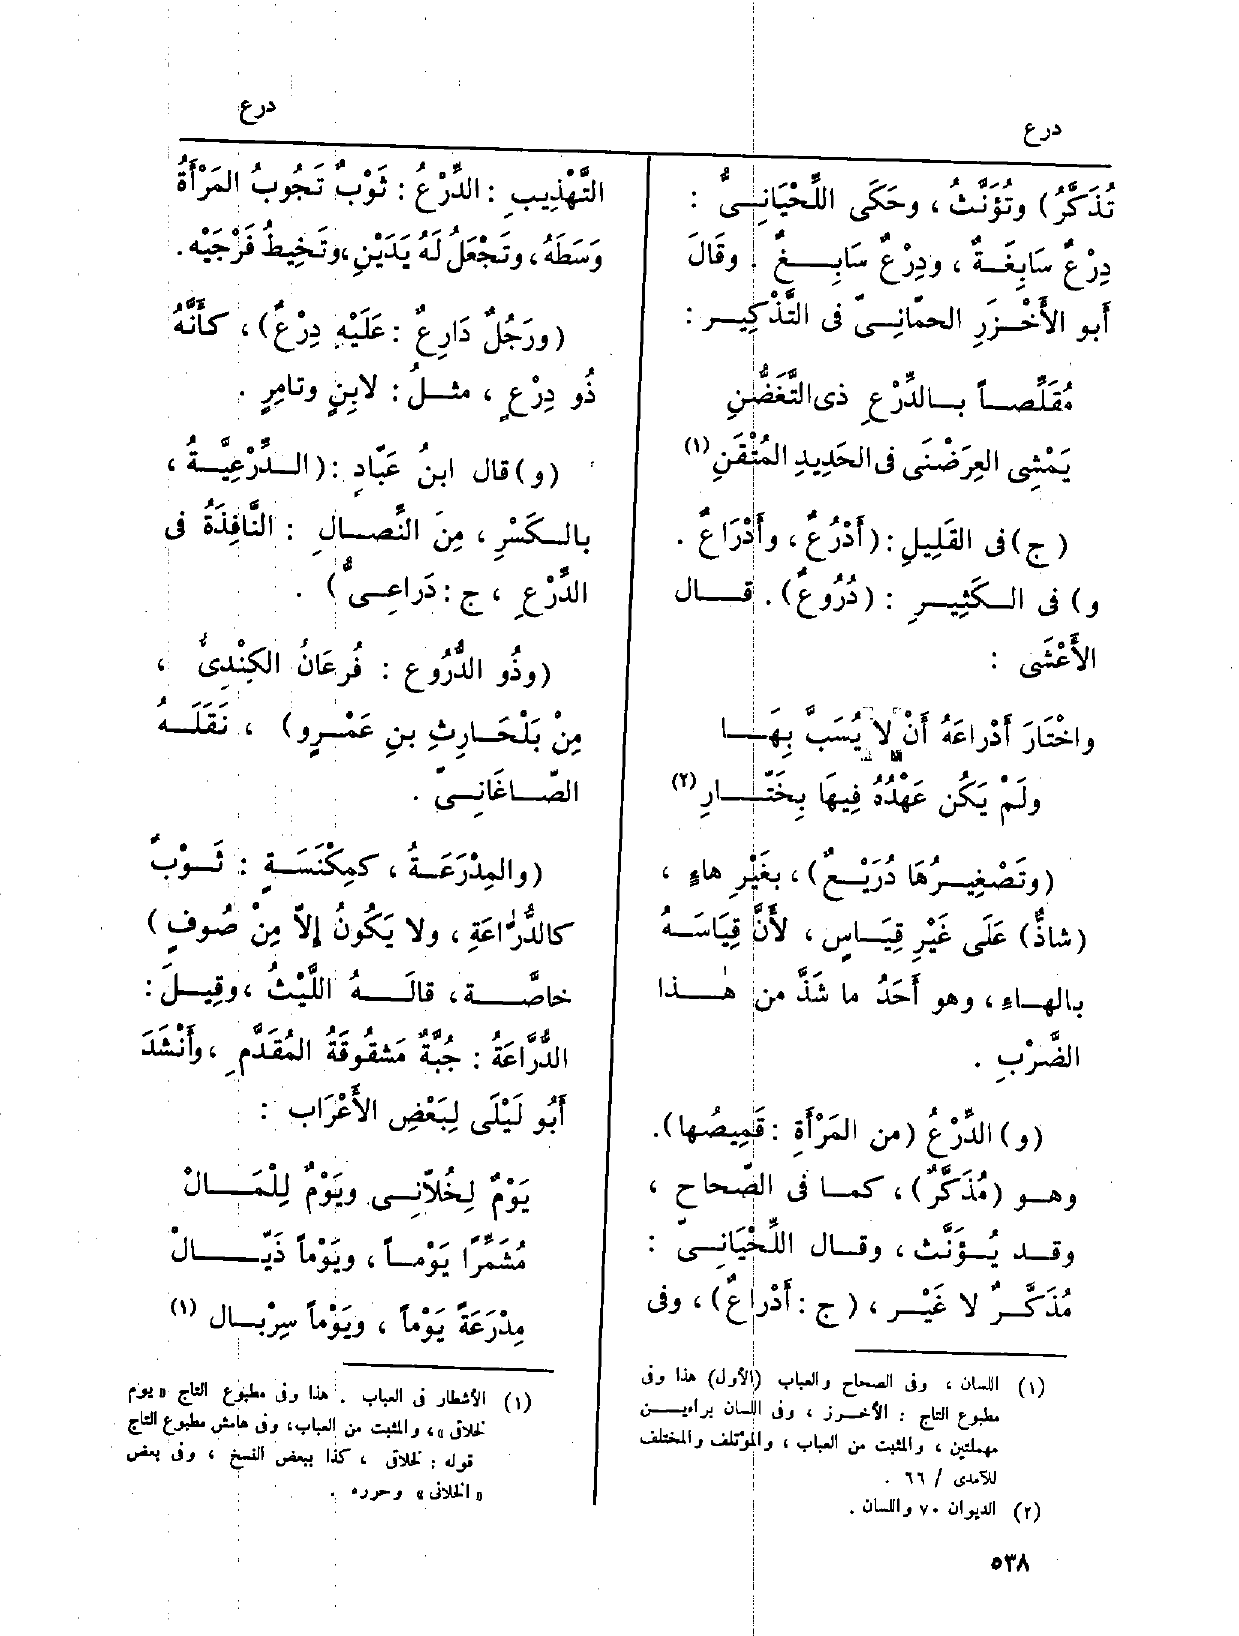 درع
تُذَكَّرُ) وتُؤَنَّثُ ، وحَكَى اللِّحْيَانِىُّ :
دِرْعٌ سَابِغَةٌ ، ودِرْعٌ سَابِغٌ . وقَالَ
أبو الأَخْزَرِ الحمّانِىّ فى التَّذْكِير :
مُقَلِّصاً بالدِّرْعِ ذى التَّغَضُّنِ
يَمْشِى العِرَضْنَى فى الحَدِيدِ المُتْقَنِ (١)
( ج ) فى القَلِيلِ : (أَدْرُعٌ ، وأَدْرَاعٌ .
و) فى الكَثِيرِ : (دُرُوعٌ) . قال
الأَعْشَى :
واخْتَارَ أَدْراعَهُ أَنْ لا يُسَبَّ بِهَا
ولَمْ يَكُن عَهْدُهُ فِيهَا بِخَتَّارِ (٢)
(وتَصْغِيرُهَا دُرَيْعٌ) ، بغَيْرِ هاءٍ ،
(شاذٌّ) عَلَى غَيْرِ قِيَاسٍ ، لأَنَّ قِيَاسَهُ
بالهاءِ ، وهو أَحَدُ ما شَذَّ من هٰذا
الضَّرْبِ .
(و) الدِّرْعُ (من المَرْأَةِ : قَمِيصُها) .
وهو (مُذَكَّرٌ) ، كما فى الصّحاح ،
وقد يُؤَنَّث ، وقال اللِّحْيَانِىّ :
مُذَكَّرٌ لا غَيْر ، ( ج : أَدْراعٌ) ، وفى
(١) اللسان ، وفى الصحاح والعباب (الأول) هذا وفى
مطبوع التاج : الأخرز ، وفى اللسان براءين
مهملتين ، والمثبت من العباب ، والمؤتلف والمختلف
للآمدى / ٦٦ .
(٢) الديوان ٧٠ واللسان .
٥٣٨
درع
التَّهْذِيبِ : الدِّرْعُ : ثَوْبٌ تَجُوبُ المَرْأَةُ
وَسَطَهُ ، وتَجْعَلُ لَهُ يَدَيْنِ ، وتَخِيطُ فَرْجَيْه .
(ورَجُلٌ دَارِعٌ : عَلَيْهِ دِرْعٌ) ، كأَنَّهُ
ذُو دِرْعٍ ، مثلُ : لابِنٍ وتامِرٍ .
(و) قال ابنُ عَبّادٍ : (الدِّرْعِيَّةُ ،
بالكَسْرِ ، مِنَ النِّصالِ : النَّافِذَةُ فى
الدِّرْعِ ، ج : دَراعِىُّ ) .
(وذُو الدُّرُوعِ : فُرعَانُ الكِنْدِىُّ ،
مِنْ بَلْحَارِثِ بنِ عَمْرٍو) ، نَقَلَهُ
الصّاغَانِىّ .
(والمِدْرَعَةُ ، كمِكْنَسَةٍ : ثَوْبٌ
كالدُّرّاعَةِ ، ولا يَكُونُ إلاَّ مِنْ صُوفٍ )
خاصَّة ، قالَهُ اللَّيْثُ ، وقِيلَ :
الدُّرَّاعَةُ : جُبَّةٌ مَشقُوقَةُ المُقَدَّمِ ، وأَنْشَدَ
أَبُو لَيْلَى لِبَعْضِ الأَعْرَاب :
يَوْمٌ لِخُلاَّنِى ويَوْمٌ لِلْمَالْ
مُشَمِّرًا يَوْماً ، ويَوْماً ذَيَّالْ
مِدْرَعَةً يَوْماً ، ويَوْماً سِرْبال (١)
(١) الأشطار فى العباب . هذا وفى مطبوع التاج «يوم
لخلاق» ، والمثبت من العباب ، وفى هامش مطبوع التاج
قوله : لخلاق ، كذا ببعض النسخ ، وفى بعض
«الخلافى» وحرره .